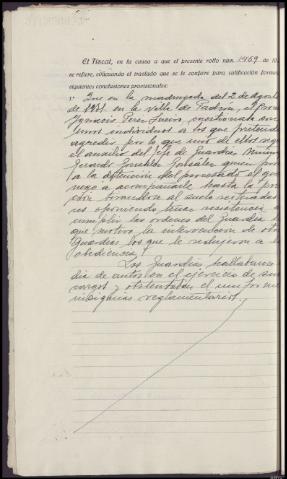 El Fiscal, en la causa a que el presente rollo núm. 1969 de 19
se refiere, evacuando el traslado que se le confiere para calificación formula
siguientes conclusiones provisionales:
1.ª Que en la madrugada del 2 de Agosto
de 1931 en la villa de Padrón, el proce
Ignacio Pérez cuestionaba con
unos individuos a los que pretendía
agredir por lo que uno de ellos
el auxilio del Jefe de Guardia Munic
Gerardo González González quien
a la detención del procesado el que
negó a acompañarle hasta la
tirandose al suelo
oponiendo tenaz resistencia
cumplir las ordenes del Guardia
que motivó la intervención de otros
Guardias los que le redujeron a la
obediencia.
Los Guardias hallabanse
día de autos en el ejercicio de sus
cargos y ostentaban el uniforme
insignias reglamentarios.